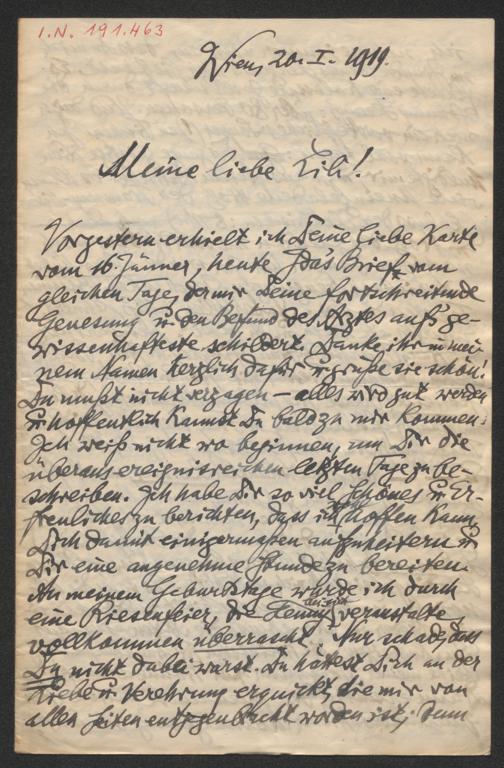 I.N. 191.463
Wien, 20. I. 1919.
Meine liebe Lili!
Vorgestern erhielt ich Deine liebe Karte
vom 16. Jänner, heute Ida's Brief vom
gleichen Tage, der mir Deine fortschreitende
Genesung u. den Befund des Arztes auf's ge-
wissenhafteste schildert. Danke ihr in mei-
nem Namen herzlich dafür u. grüße sie schön!
Du mußt nicht verzagen – alles wird gut werden
u. hoffentlich kannst Du bald zu mir kommen.
Ich weiß nicht wo beginnen, um Dir die
überaus ereignisreichen letzten Tage zu be-
schreiben. Ich habe Dir so viel Schönes u. Er-
freuliches zu berichten, dass ich hoffen kann,
Dich damit einigermaßen aufzuheitern u.
Dir eine angenehme Stunde zu bereiten.
An meinem Geburtstage wurde ich durch
eine Riesenfeier, die Henny veranstalte,
vollkommen überrascht. Nur schad, dass
Du nicht dabei warst. Du hättest Dich an der
Liebe u. Verehrung erquickt, die mir von
allen Seiten entgegenbracht worden ist, denn